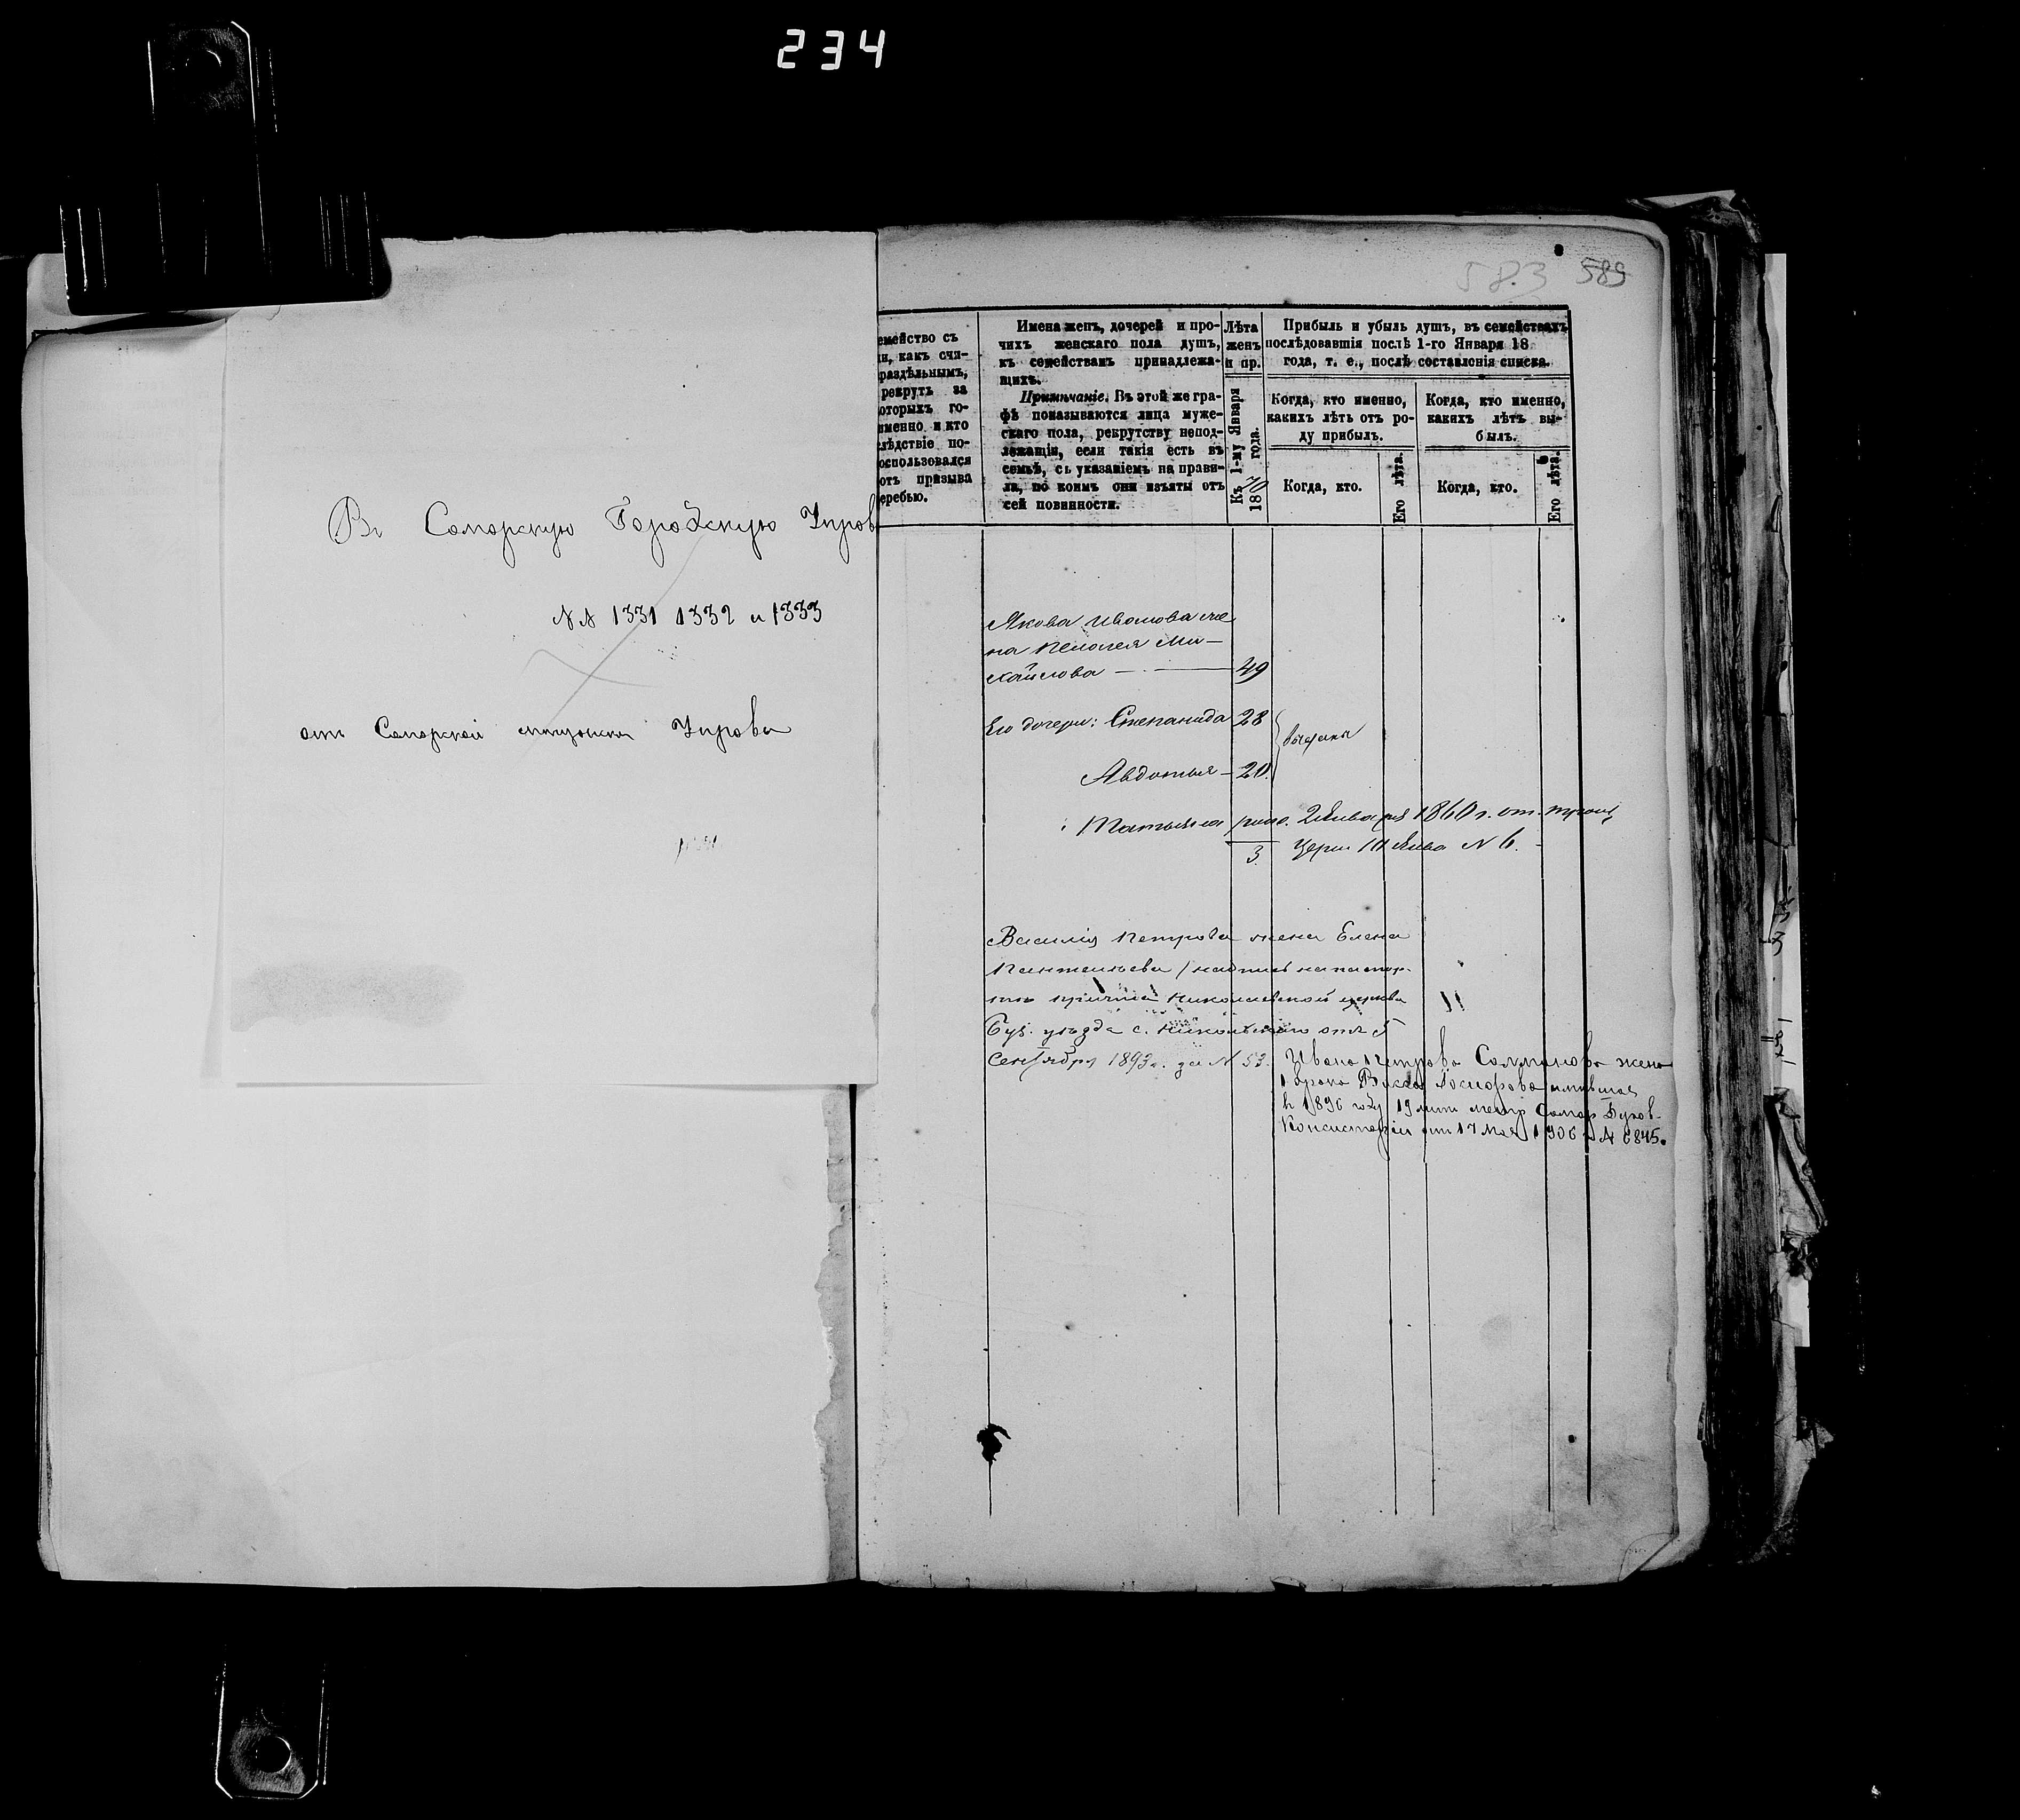 234
583 589
Въ Самарскую Городскую Управ
№№ 1331 1332 и 1333
отъ Самарской мѣщанской Управы
емейство съ
и, какъ счи-
раздѣльнымъ,
рекрутъ за
оторыхъ го-
именно и кто
слѣдствіе по-
оспользовался
отъ призыва
еребью.
Имена женъ, дочерей и про-
чихъ женскаго пола душъ,
къ семействамъ принадлежа-
щихъ.
Примѣчаніе. Въ этой же гра-
фѣ показываются лица муже-
скаго пола, рекрутству непод-
лежащія, если такія есть въ
семьѣ, съ указаніемъ на прави-
ла, по коимъ они изъяты отъ
сей повинности.
Лѣта
женъ
и пр.
Къ 1-му Января
1870 года.
Прибыль и убыль душъ, въ семействахъ
послѣдовавшія послѣ 1-го Января 18
года, т. е., послѣ составленія списка.
Когда, кто именно,
какихъ лѣтъ отъ ро-
ду прибылъ.
Когда, кто.
Его лѣта.
Когда, кто именно,
какихъ лѣтъ вы-
былъ.
Когда, кто.
Его лѣта.
Якова Иванова же
на Пелагея Ми-
хайлова 49
Его дочери: Степанида 28
выданы
Авдотья 20
Татьяна 2 Января 1860 г. от.
3. № 6.
Василія Петрова жена Елена
Пантельева / надпись на паспор-
тѣ причта Николаевской церкви
Буз. уѣзда с. Никольскаго отъ 5
Сентября 1893 г. за № 53.
Ивана Петрова жена
1 брака
въ 1896 году 19 лѣтъ метр Самар Духов.
Консисторіи отъ 17 Мая 1906 г № 6845.